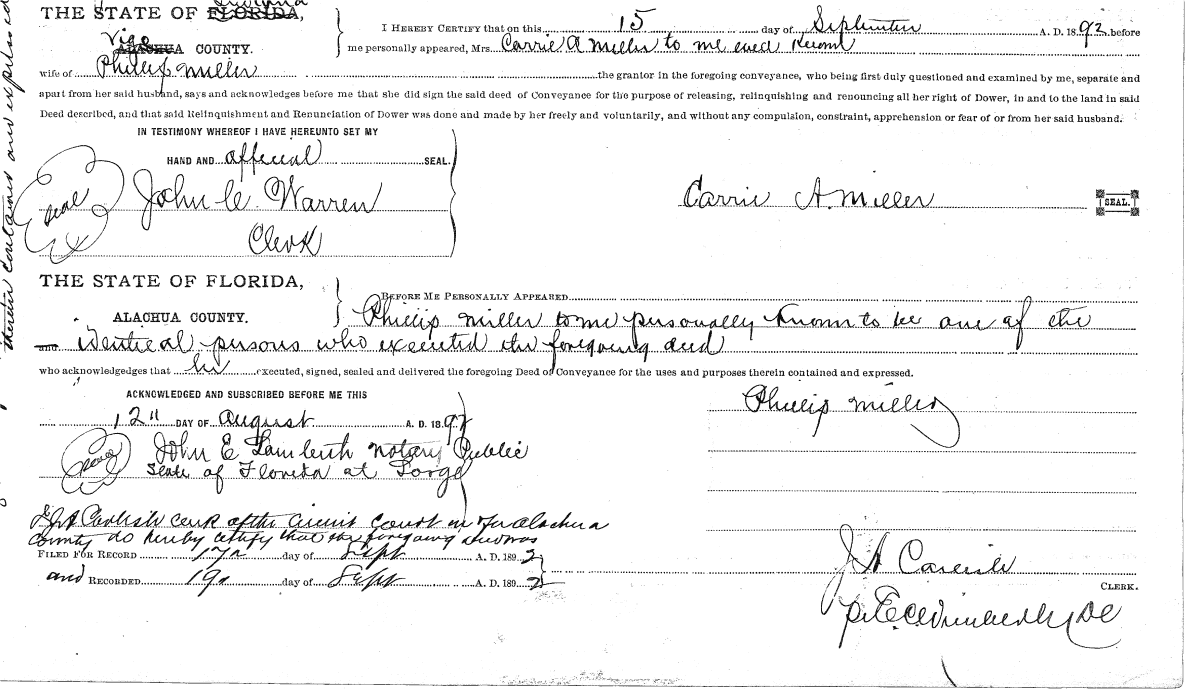 therein contained and expressed
THE STATE OF FLORIDA, Indiana
Vigo
ALACHUA COUNTY.
I HEREBY CERTIFY that on this 15 day of September A. D. 1892 before
me personally appeared, Mrs. Carrie A Miller to me well known
wife of Phillip Miller the grantor in the foregoing conveyance, who being first duly questioned and examined by me, separate and
apart from her said husband, says and acknowledges before me that she did sign the said deed of Conveyance for the purpose of releasing, relinquishing and renouncing all her right of Dower, in and to the land in said
Deed described, and that said Relinquishment and Renunciation of Dower was done and made by her freely and voluntarily, and without any compulsion, constraint, apprehension or fear of or from her said husband.
IN TESTIMONY WHEREOF I HAVE HEREUNTO SET MY
HAND AND official SEAL.
Seal
John C. Warren
Clerk
Carrie A. Miller
SEAL.
THE STATE OF FLORIDA,
ALACHUA COUNTY.
BEFORE ME PERSONALLY APPEARED
Phillip Miller to me personally known to be one of the
and identical persons who executed the foregoing deed
who acknowledgedges that he executed, signed, sealed and delivered the foregoing Deed of Conveyance for the uses and purposes therein contained and expressed.
ACKNOWLEDGED AND SUBSCRIBED BEFORE ME THIS
12" DAY OF August A. D. 1892
Seal
John E Lambeth Notary Public
State of Florida at Large
Phillip Miller
I J A Carlisle clerk of the Circuit Court in & for Alachua
County do hereby certify that the foregoing deed was
FILED FOR RECORD 17" day of Sept A. D. 1892
and RECORDED 19" day of Sept A. D. 1892
J A Carlisle
CLERK.
pr E.C. Wimberly DC